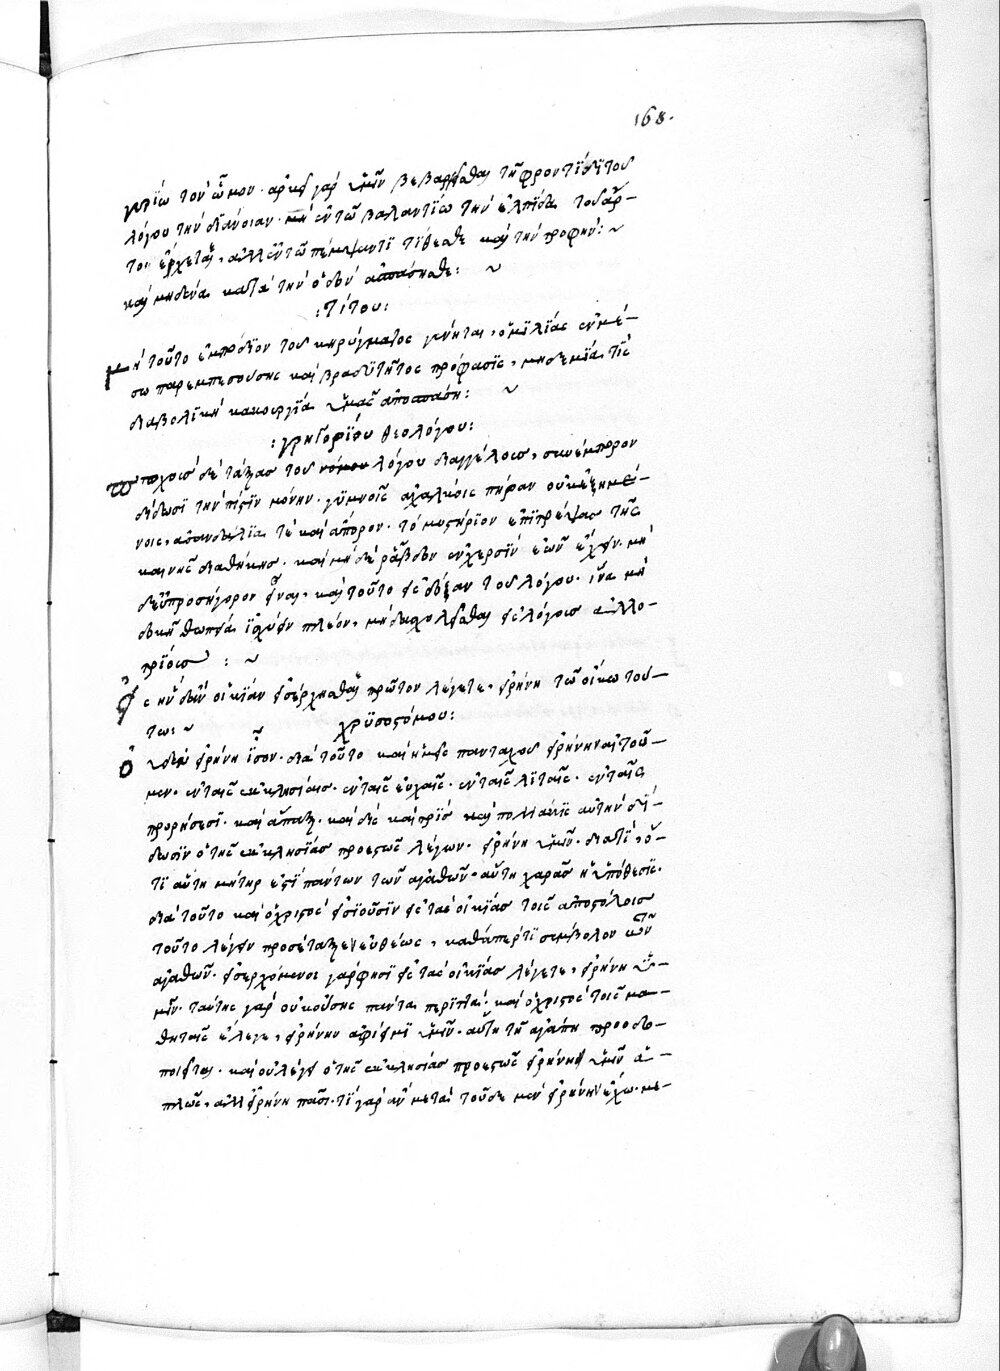 168.
γυρίω τὸν ὦμον. ἀρκεῖ γὰρ ὑμῖν βεβαρεῖσθαι τῇ φροντίδι τοῦ
λόγου τὴν διάνοιαν. μὴ ἐν τῶ βαλαντίω τὴν ἐλπίδα τοῦ ἄρ-
του ἔρχεται, ἀλλ' ἐν τῶ πέμψαντι τίθεσθε καὶ τὴν τροφήν:~
καὶ μηδένα κατὰ τὴν ὁδὸν ἀσπάσησθε: ~
:τίτου:
μὴ τοῦτο ἐμπόδιον τοῦ κηρύγματος γένηται, ὁμιλίας ἐν μέ-
σω παρεμπεσούσης καὶ βραδυτῆτος πρόφασις, μηδεμία τίς
διαβολικὴ κακουργία ὑμᾶς ἀποσπάση: ~
:γρηγορίου θεολόγου:
πτωχοῖς δὲ τάξας τοῦ νόμου λόγου διαγγέλοις, συνέμπορον
δίδωσι τὴν πίστιν μόνην. γυμνοῖς ἀχάλκοις πήραν οὐκ ἐξημμέ-
νοις, ἀσανδάλια τὲ καὶ ἄπορον. τὸ μυστήριον ἐπιτρέψας τῆς
καινῆς διαθήκης. καὶ μὴ δὲ ῥάβδον ἐν χερσὶν ἐῶν ἔχειν. μὴ
δ' εὐπροσήγορον εἶναι, καὶ τοῦτο εἰς δόξαν τοῦ λόγου. ἵνα μὴ
δοκῆ θωπεία ἰσχύειν πλέον, μηδ' ἀσχολεῖσθαι εἰς λόγοις ἀλλο-
τρίοις : ~
εἰς ἣν δ' ἂν οἰκίαν εἰσέρχησθαι πρῶτον λέγετε, εἰρήνη τῶ οἴκω τού-
τω:~ χρυσοστόμου:
οὐδὲν εἰρήνη ἴσον. διὰ τοῦτο καὶ ἡμεῖς πανταχοῦ εἰρήνην αἰτοῦ-
μεν. ἐν ταῖς ἐκκλησίαις. ἐν ταῖς εὐχαῖς. ἐν ταῖς λιταῖς. ἐν ταῖς
προρήσεσι. καὶ ἅπαξ. καὶ δὶς καὶ τρὶς καὶ πολλάκις αὐτὴν δί-
δωσιν ὁ τῆς ἐκκλησίας προεστὼς λέγων. εἰρήνη ὑμῖν. διατί, ὅ-
τι αὕτη μήτηρ ἐστὶ πάντων τῶν ἀγαθῶν. αὕτη χαρᾶς ἡ ὑπόθεσις.
διὰ τοῦτο καὶ ὁ χριστὸς εἰσιοῦσιν εἰς τὰς οἰκίας τοῖς ἀποστόλοις
τοῦτο λέγειν προσέταξεν εὐθέως, καθάπερ τὶ σύμβολον ὢν τῶν
ἀγαθῶν. εἰσερχόμενοι γάρ φησι εἰς τὰς οἰκίας λέγετε, εἰρήνη ὑ-
μῖν. ταύτης γὰρ οὐκ οὔσης πάντα περιττά. καὶ ὁ χριστὸς τοῖς μα-
θηταῖς ἔλεγε, εἰρήνην ἀφίημι ὑμῖν. αὕτη τῆ ἀγάπη προοδο-
ποιεῖται. καὶ οὐ λέγει ὁ τῆς ἐκκλησίας προεστὼς εἰρήνη ὑμῖν ἁ-
πλῶς, ἀλλ' εἰρήνη πᾶσι. τί γὰρ ἂν μετὰ τοῦδε μὲν εἰρήνην ἔχω. με-